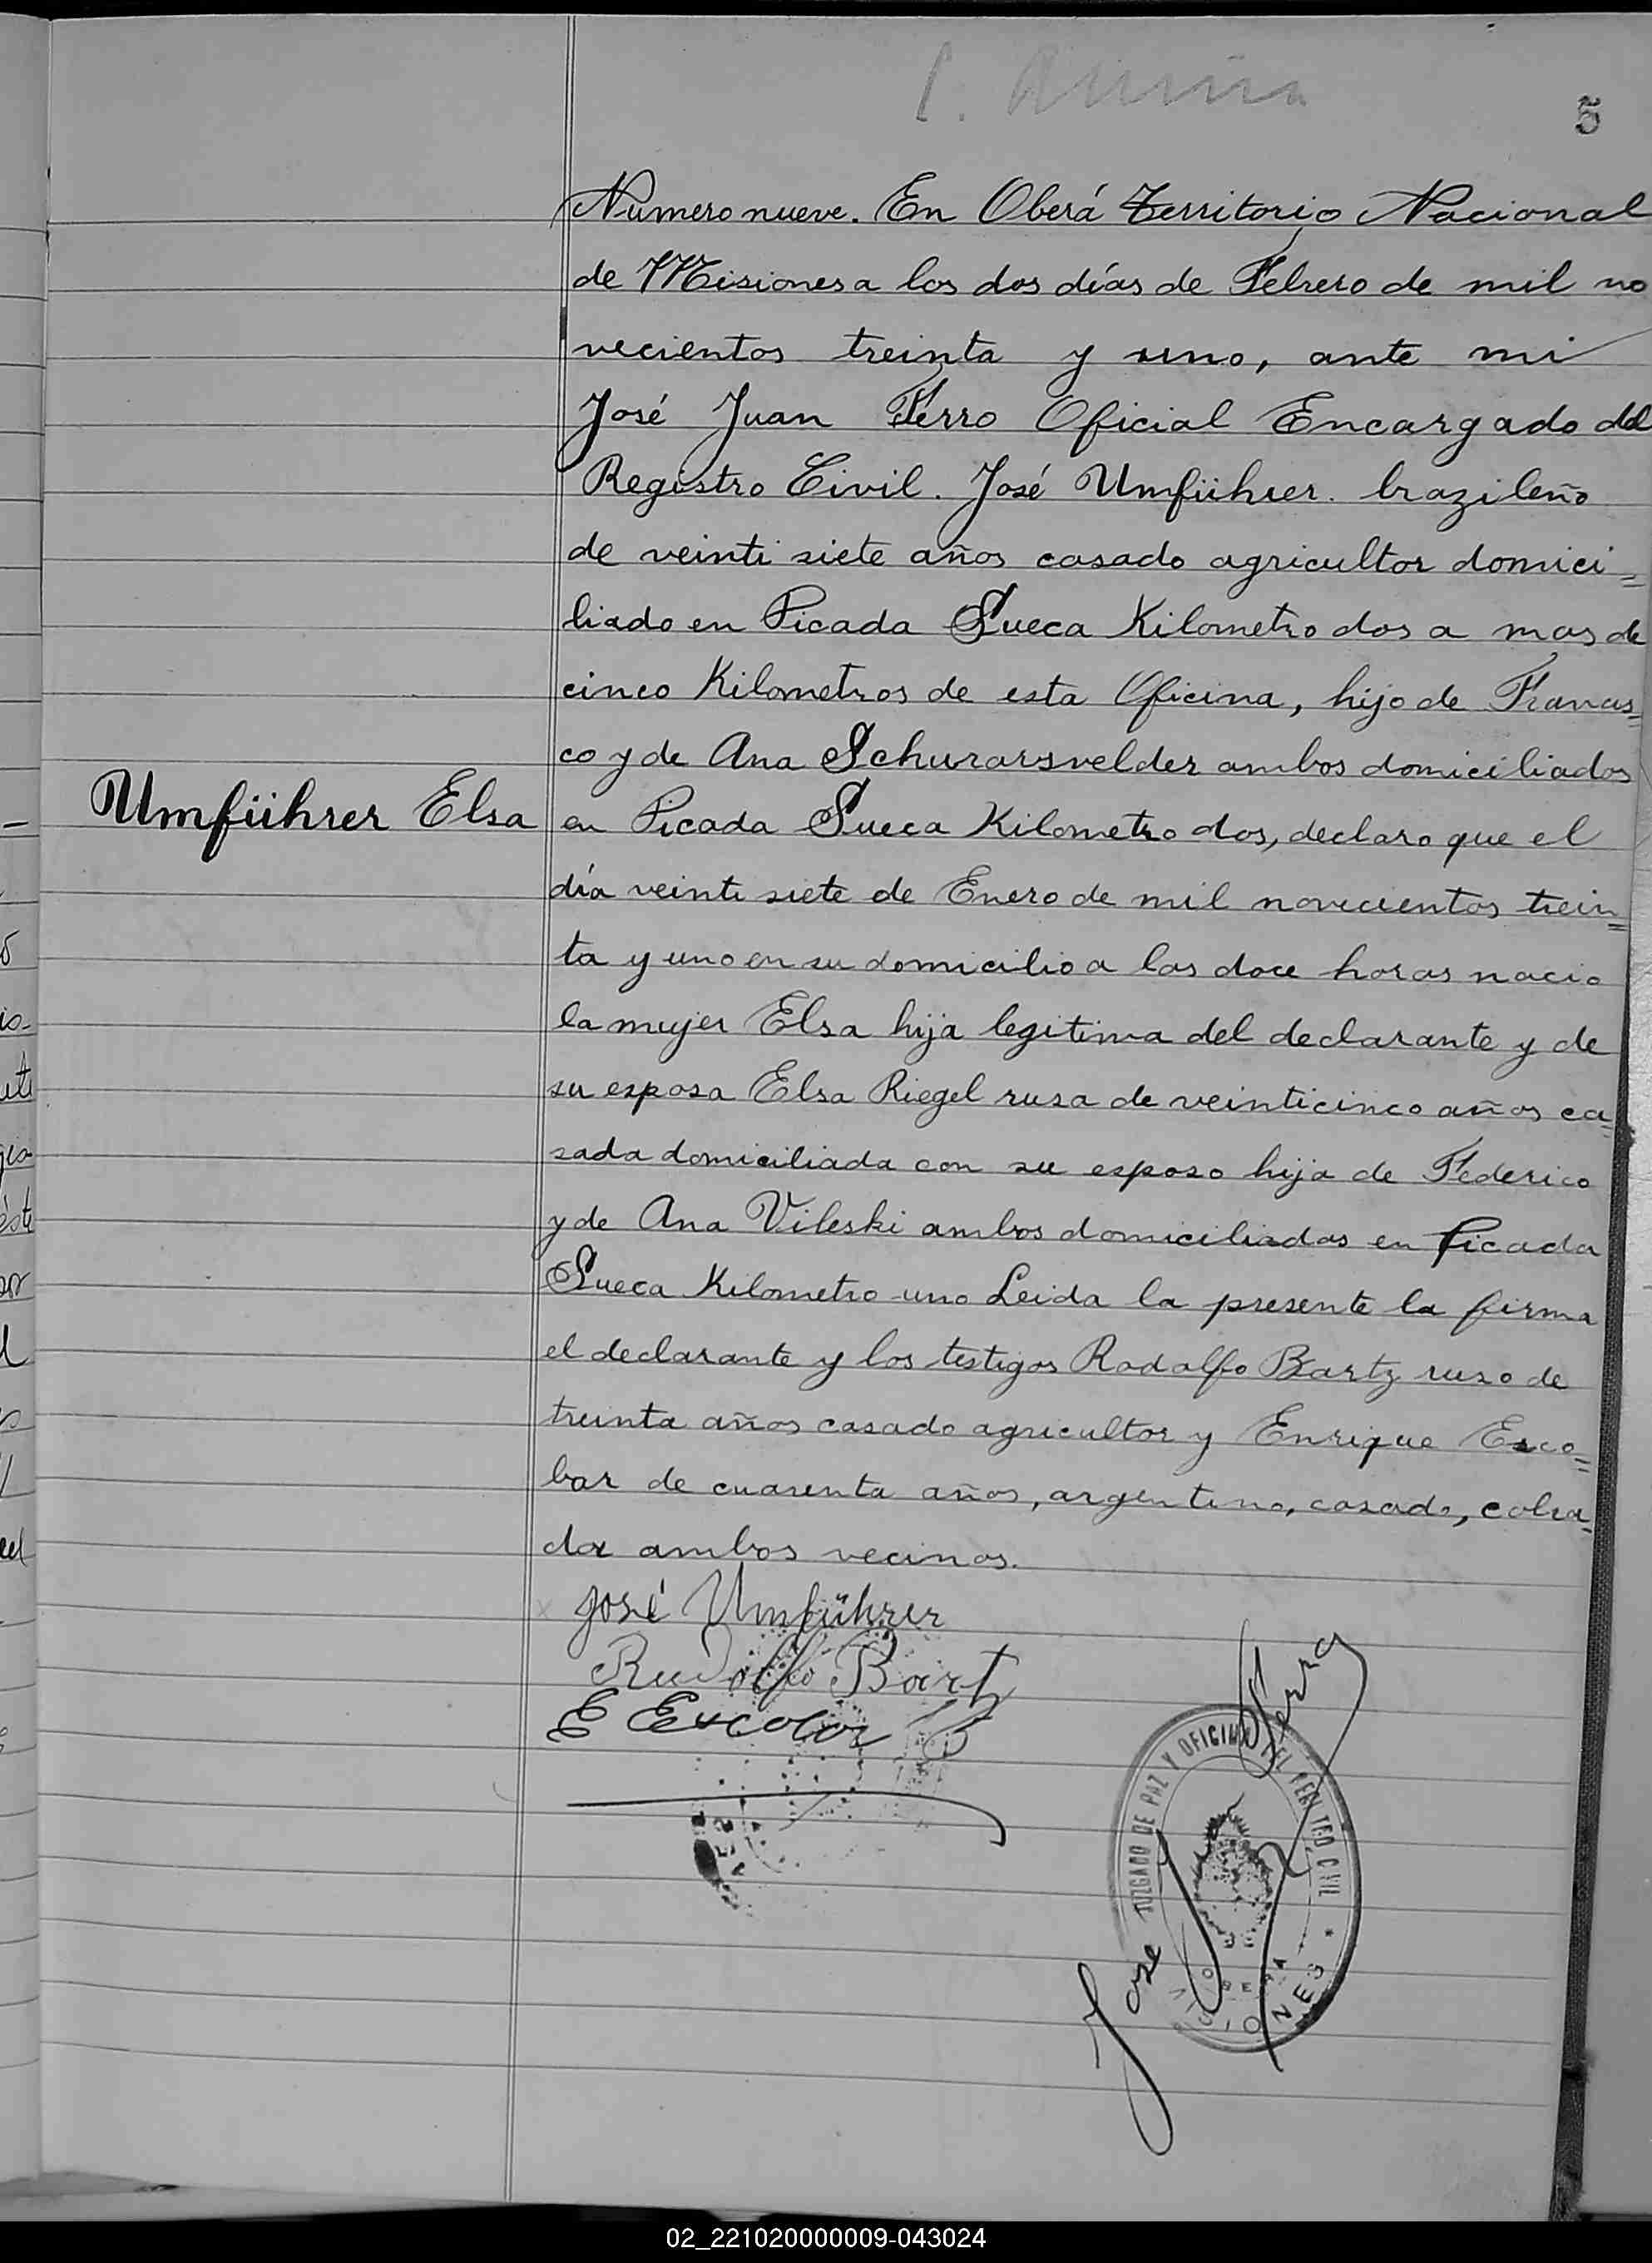 5
Numero nueve. En Oberá Territorio Nacional
de Misiones a los dos días de Febrero de mil no
vecientos treinta y uno, ante mi
José Juan Ferro Oficial Encargado del
Registro Civil. José Umführer. brazileño
de veinti siete años casado agricultor domici=
liado en Picada Sueca Kilometro dos a mas de
cinco Kilometros de esta Oficina, hijo de Francis=
co y de Ana Schurarsvelder ambos domiciliados
Umführer Elsa
en Picada Sueca Kilometro dos, declaro que el
día veinti siete de Enero de mil novecientos trein=
ta y uno en su domicilio a las doce horas nacio
la mujer Elsa hija legitima del declarante y de
su esposa Elsa Riegel rusa de veinticinco años ca=
sada domiciliada con su esposo hija de Federico
y de Ana Vileski ambos domiciliados en Picada
Sueca Kilometro uno Leida la presente la firma
el declarante y los testigos Rodolfo Bartz ruso de
treinta años casado agricultor y Enrique Esco=
bar de cuarenta años, argentino, casado, cobra=
dor ambos vecinos.
José Umführer
Rudolfo Bartz
E Escobar
Jose J Ferro
JUZGADO DE PAZ Y OFICINA DEL REGISTRO CIVIL
OBERA
MISIONES
02_221020000009-043024